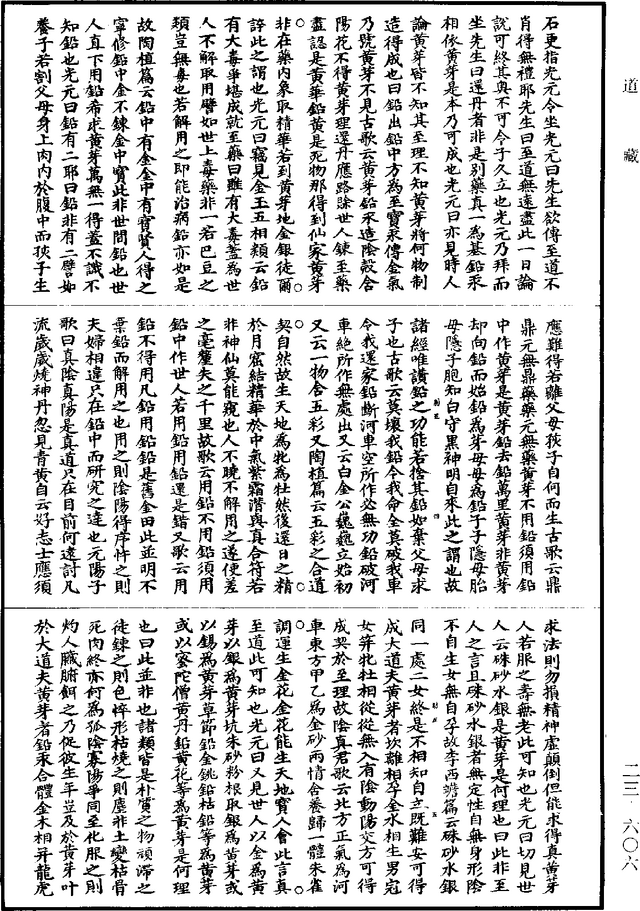 道藏
石更指光元令坐光元曰先生欲傳至道不
肖得無禮耶先生曰至道無遠盡此一日論
說可終其奧不可令子久立也光元乃拜而
坐先生曰還丹者非是別藥真一為基鉛汞
相依黃芽是本乃可成也光元曰亦見時人
論黃芽皆不知其至理不知黃芽將何物制
造得成也曰鉛出鉛中方為至寶汞傳金氣
乃號黃芽不見古歌云黃芽鉛汞造陰殼含
陽花不得黃芽理還丹應路賒世人鍊至藥
盡認是黃華鉛黃是死物那得到仙家黃芽
非在藥內象取精華若到黃芽地金銀徒爾
誇此之謂也光元曰竊見金玉五相類云鉛
有大毒爭堪成就至藥曰雖有大毒蓋為世
人不解取用譬如世上毒藥非一若巴豆之
類豈無毒也若解用之即能治病鉛亦如是
故陶植篇云鉛中有金金中有寶賢人得之
寧修鉛中金不鍊金中寶此非世間鉛也世
人直下用鉛希求黃芽萬無一得蓋不識不
知鉛也光元曰鉛有二耶曰鉛非有二譬如
養子若割父母身上肉內於腹中而狹子生
應難得若離父母孩子自何而生古歌云鼎
鼎元無鼎藥藥元無藥黃芽不用鉛須用鉛
中作黃芽是黃芽鉛去鉛萬里黃芽非黃芽
却向鉛而始鉛為芽母母為鉛子子隱母胎
母隱子胞知白守黑神明自來此之謂也故
諸經唯讚鉛之功能若捨其鉛如棄父母求
子也古歌云莫壞我鉛令我命全莫破我車
令我還家鉛斷河車空所作必無功鉛破河
車絕所作無處出又云白金公巍巍立始初
又云一物含五彩又陶植篇云五彩之合道
契自然故生天地為牝為牡然後還日之精
於月窟結精華於中氣紫霜潛與真合符若
非神仙莫能窺也人不曉不解用之遂使差
之毫釐失之千里故歌云用鉛不用鉛須用
鉛中作世人若用鉛用鉛還是錯又歌云用
鉛不得用凡鉛用鉛鉛是舊金田此並明不
棄鉛而解用之也用之則陰陽得序忤之則
夫婦相違只在鉛中而研究之達也元陽子
歌曰真陰真陽是真道只在目前何遠討凡
流歲歲燒神丹忽見青黃自云好志士應須
求法則勿損精神虛顛倒但能求得真黃芽
人若服之壽無老此可知也光元曰切見世
人云硃砂水銀是黃芽是何理也曰此非至
人之言且硃砂水銀者無定性自無身形陰
不自生女無自孕故李西蟾篇云硃砂水銀
同一處二女終是不相知自立既難安可得
成大道夫黃芽者坎離相孕金水相生男冠
女笄牝牡相從從無入有陰動陽交方可得
成契於至理故陰真君歌云北方正氣為河
車東方甲乙為金砂兩情含養歸一體朱雀
調運生金花金花能生天地寶人會此言真
至道此可知也光元曰又見世人以金為黃
芽以銀為黃芽坑朱砂粉根取銀為黃芽或
以錫為黃芽草節鉛金銚鉛枯鉛等為黃芽
或以密陀僧黃丹鉛黃花等為黃芽是何理
也曰此並非也諸類皆是朴質之物頑滯之
徒鍊之則色悴形枯燒之則塵非土變枯骨
死肉終亦何為孤陰寡陽爭同至化服之則
灼人臟腑餌之乃促彼生年豈及於黃芽叶
於大道夫黃芽者鉛汞合體金木相并龍虎
二三、六〇六